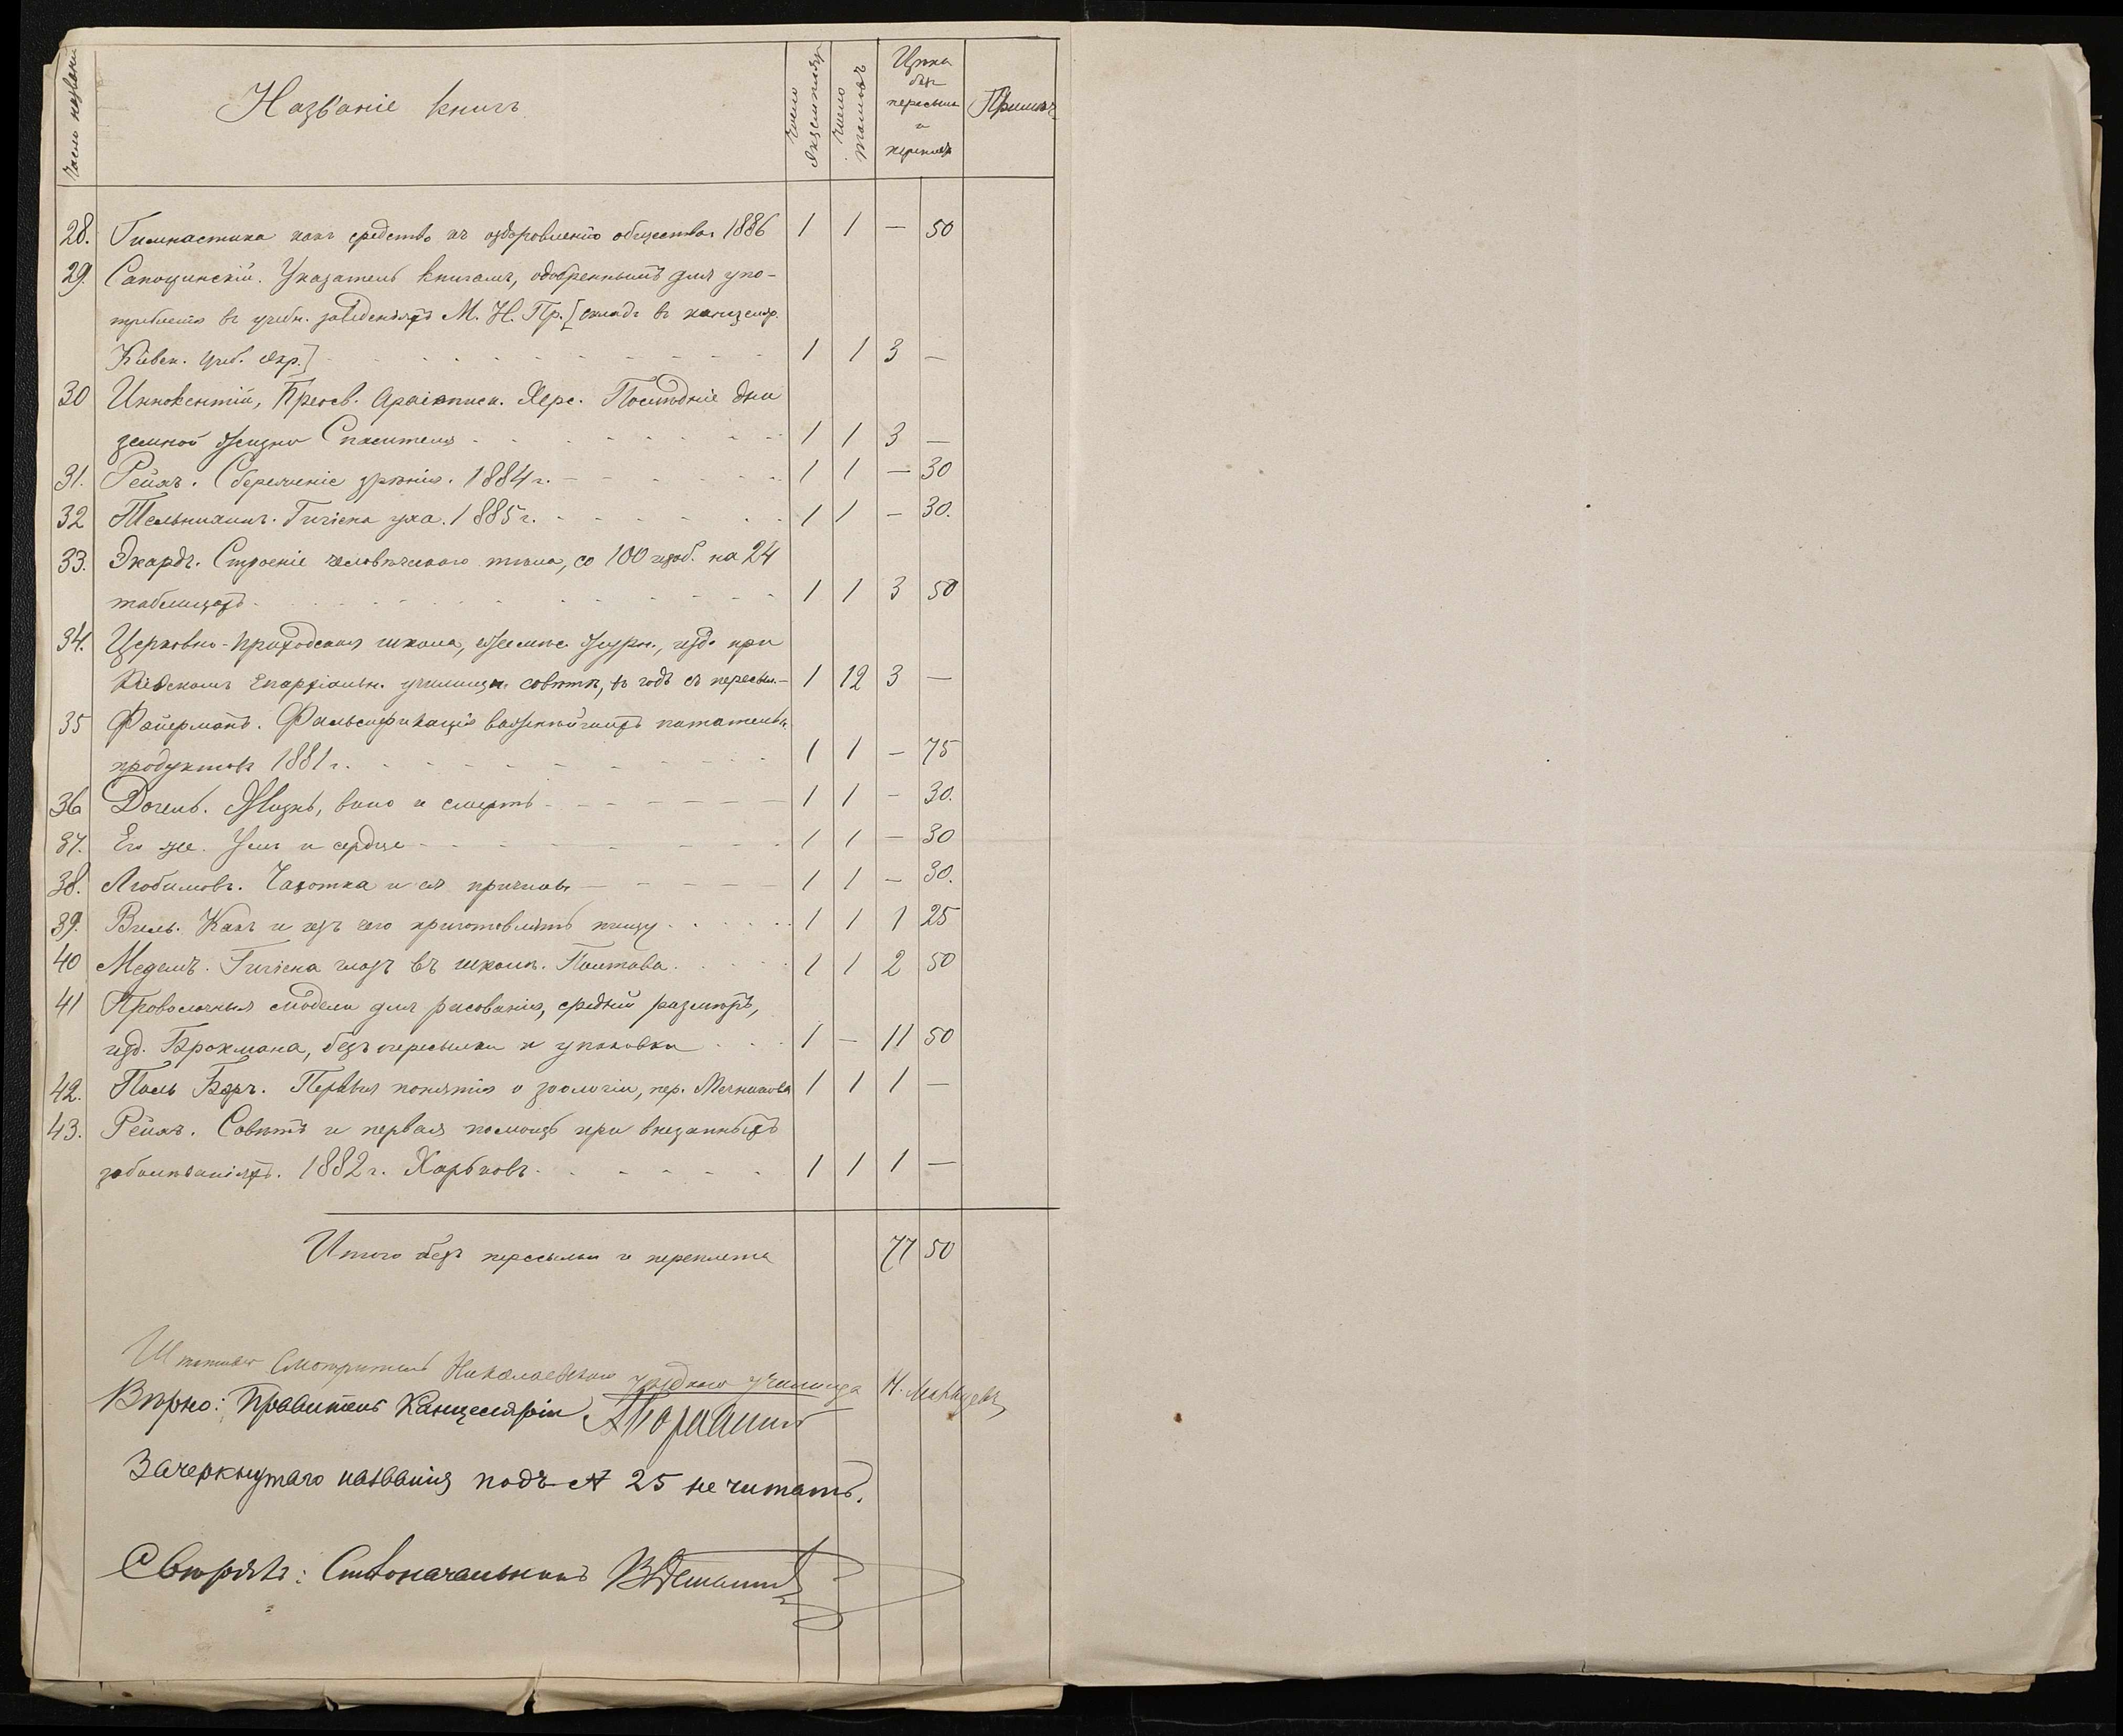 Число названій
Названіе книгъ
Число экземпляр.
Число томовъ
Цѣна безъ пересылки и переплета
Примѣч.
28. Гимнастика какъ средство къ оздоровленію общества 1886 1 1 — 50
29. Сапощинскій. Указатель книгамъ, одобреннымъ для упо-
требленія въ учебн. заведеніяхъ М. Н. Пр. [складъ въ канцеляр.
Кіевск. Учеб. Окр.] 1 1 3 —
30 Иннокентій, Преосв. Архіеписк. Херс. Послѣдніе дни
земной жизни Спасителя 1 1 3 —
31. Рейхъ. Сбереженіе зрѣнія. 1884 г. 1 1 — 30
32 Тельнихинъ. Гигіена уха. 1885 г. 1 1 — 30.
33. Экардъ. Строеніе человѣческаго тѣла, со 100 изоб. на 24
таблицахъ 1 1 3 50
34. Церковно-приходская школа, ежемѣс. журн., изд. при
Кіевскомъ Епархіальн. училищн. совѣтѣ, въ годъ съ пересыл. — 1 12 3 —
35 Файерманъ. Фальсификація важнѣйшихъ питательн.
продуктовъ 1881 г. 1 1 — 75
36 Догель. Жизнь, вино и смерть 1 1 — 30.
37. Его же. Умъ и сердце 1 1 — 30
38. Любимовъ. Чахотка и ея причины 1 1 — 30.
39. Виль. Какъ и изъ чего приготовлять пищу 1 1 1 25
40 Медемъ. Гигіена глазъ въ школѣ. Полтава. 1 1 2 50
41 Проволочныя модели для рисованія, средній размѣръ,
изд. Брокмана, безъ пересылки и упаковки 1 — 11 50
42. Поль Бэръ. Первыя понятія о зоологіи, пер. Мечникова 1 1 1 —
43. Рейхъ. Совѣтъ и первая помощь при внезапныхъ
заболѣваніяхъ. 1882 г. Харьковъ. 1 1 1 —
Итого безъ пересылки и переплета 77 50
Штатный Смотритель Николаевскаго уѣзднаго училища Н.
Вѣрно: Правитель Канцеляріи
Зачеркнутаго названія подъ № 25 не читать.
Свѣрялъ: Столоначальникъ